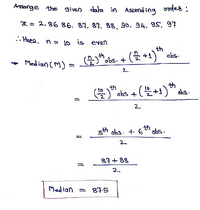 Arrange the given data in Ascending order;
x = 2, 86 86, 87, 87, 88, 90, 94, 95, 97
∴ Here, n = 10 is even
→ Median (M) = ((n/2)th obs. + (n/2 + 1)th obs.) / 2
= ((10/2)th obs + (10/2 + 1)th obs.) / 2
= (5th obs. + 6th obs.) / 2
= (87 + 88) / 2
Median = 87.5